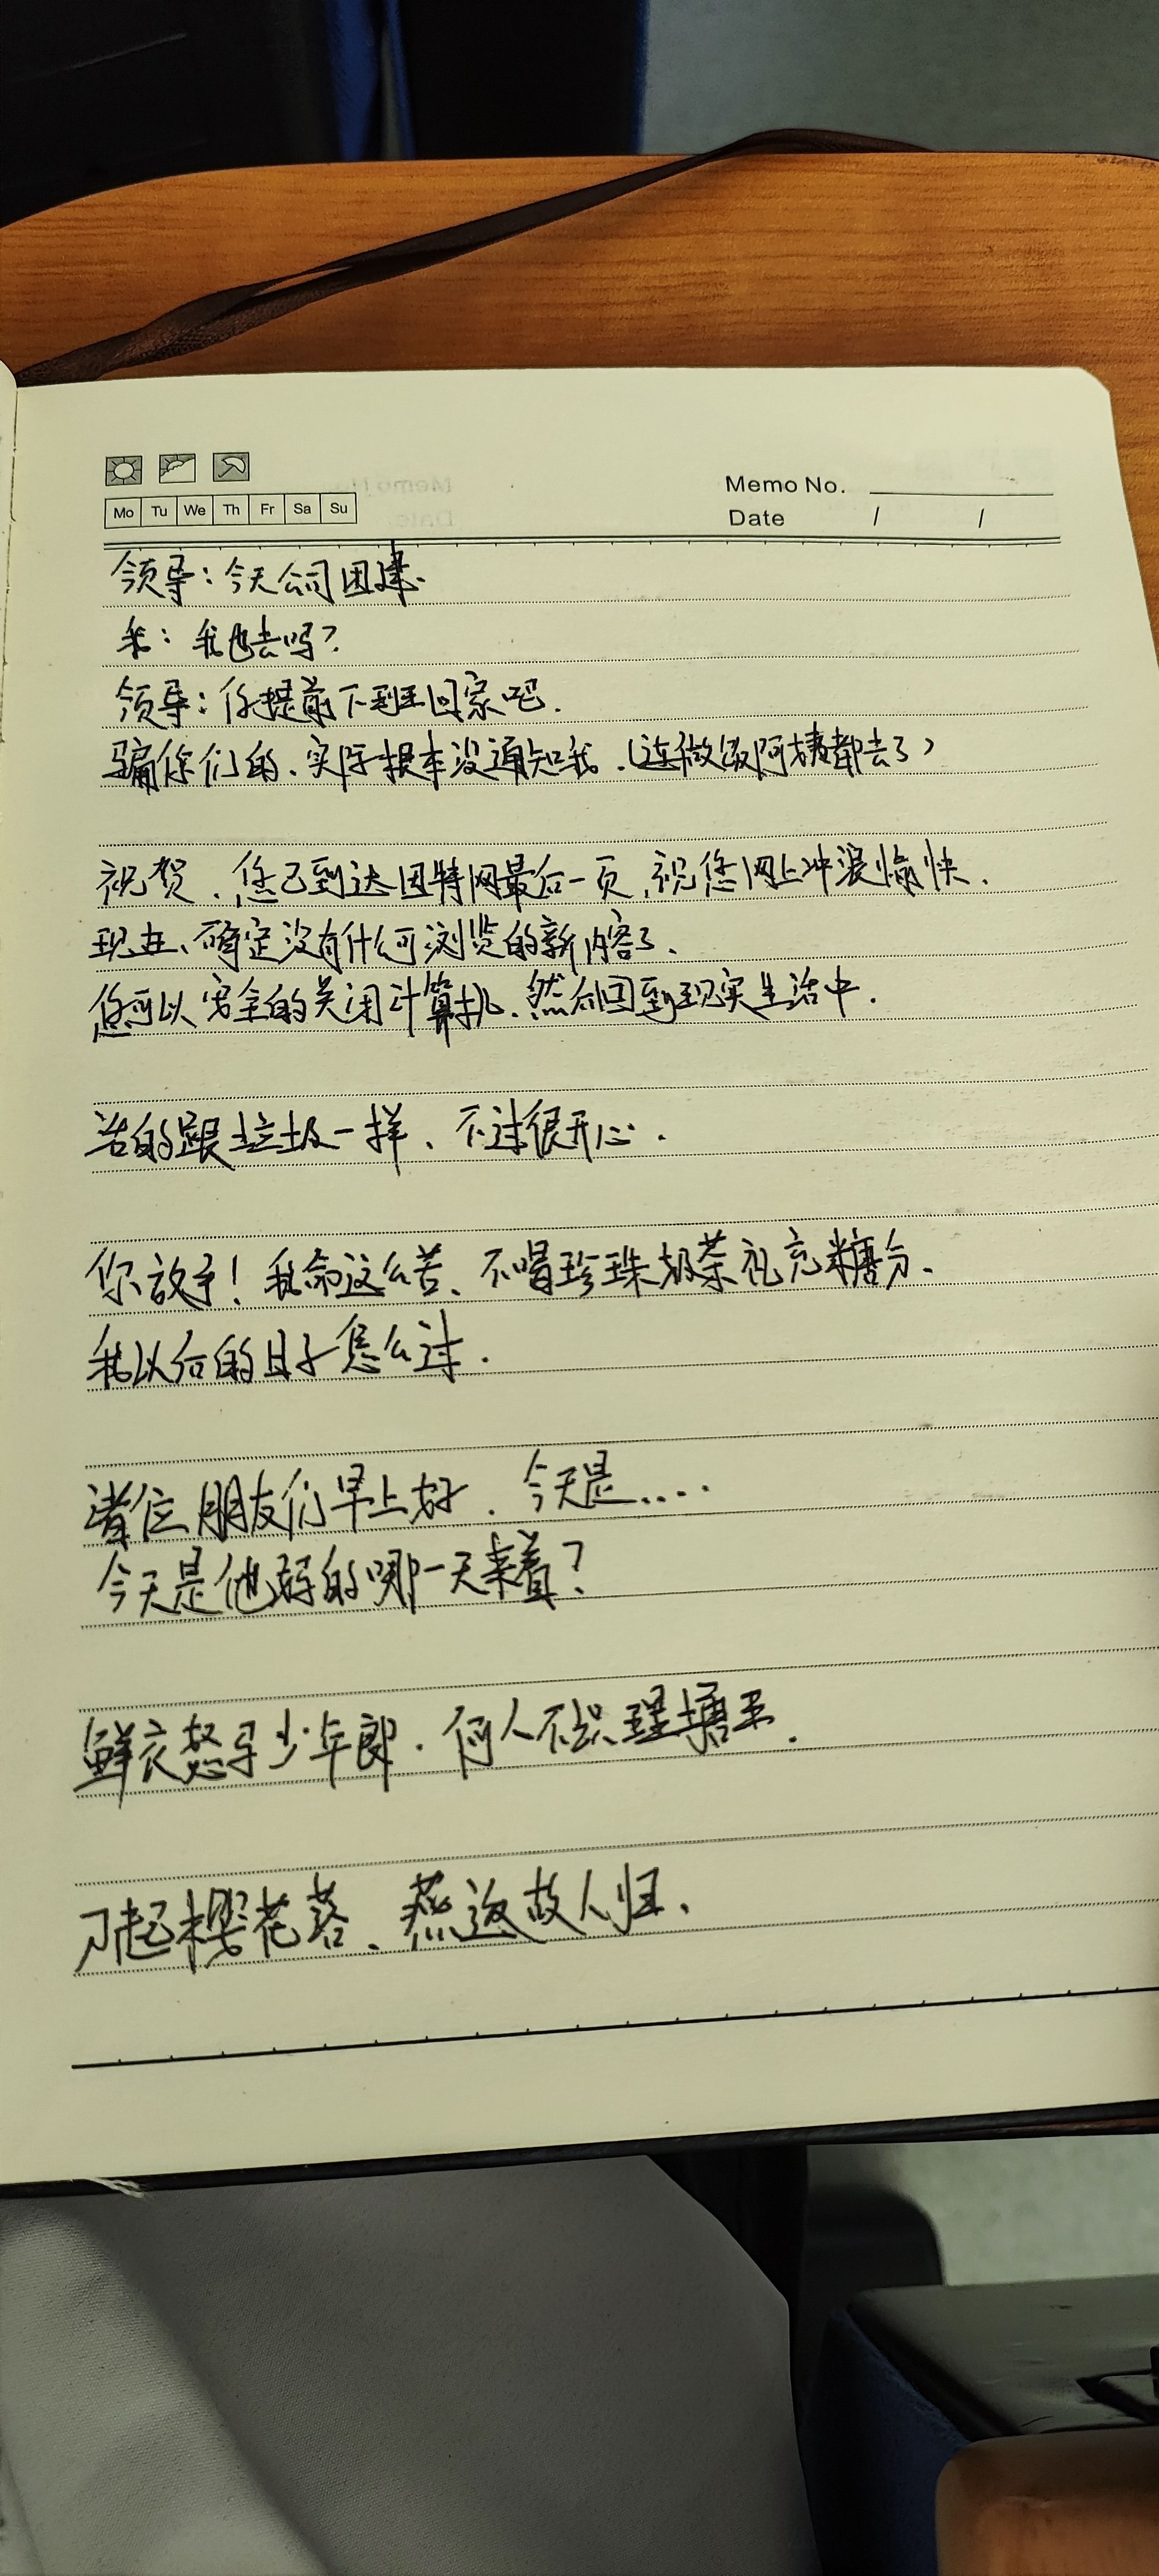 Memo No.
Mo Tu We Th Fr Sa Su
Date / /
领导：今天公司团建、
我：我也去吗？
领导：你提前下班回家吧．
骗你们的、实际根本没通知我．（连做饭阿姨都去了）
祝贺．您已到达因特网最后一页，祝您网上冲浪愉快．
现在、确定没有什么可浏览的新内容了、
您可以安全的关闭计算机、然后回到现实生活中．
活的跟垃圾一样、不过很开心．
你放手！我命这么苦、不喝珍珠奶茶补充糖分、
我以后的日子怎么过．
诸位朋友们早上好．今天是....
今天是他妈的哪一天来着？
鲜衣怒马少年郎．何人不识
起樱花落、燕返故人归、